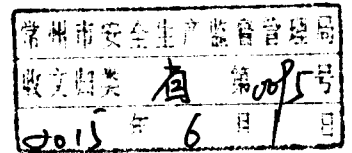 常州市安全生产监督管理局
收文归类 省 第0095号
2015年6月9日